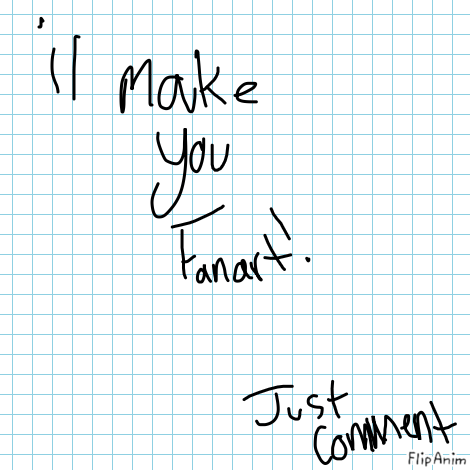 i'll make
you
Fanart!
Just
comment
FlipAnim